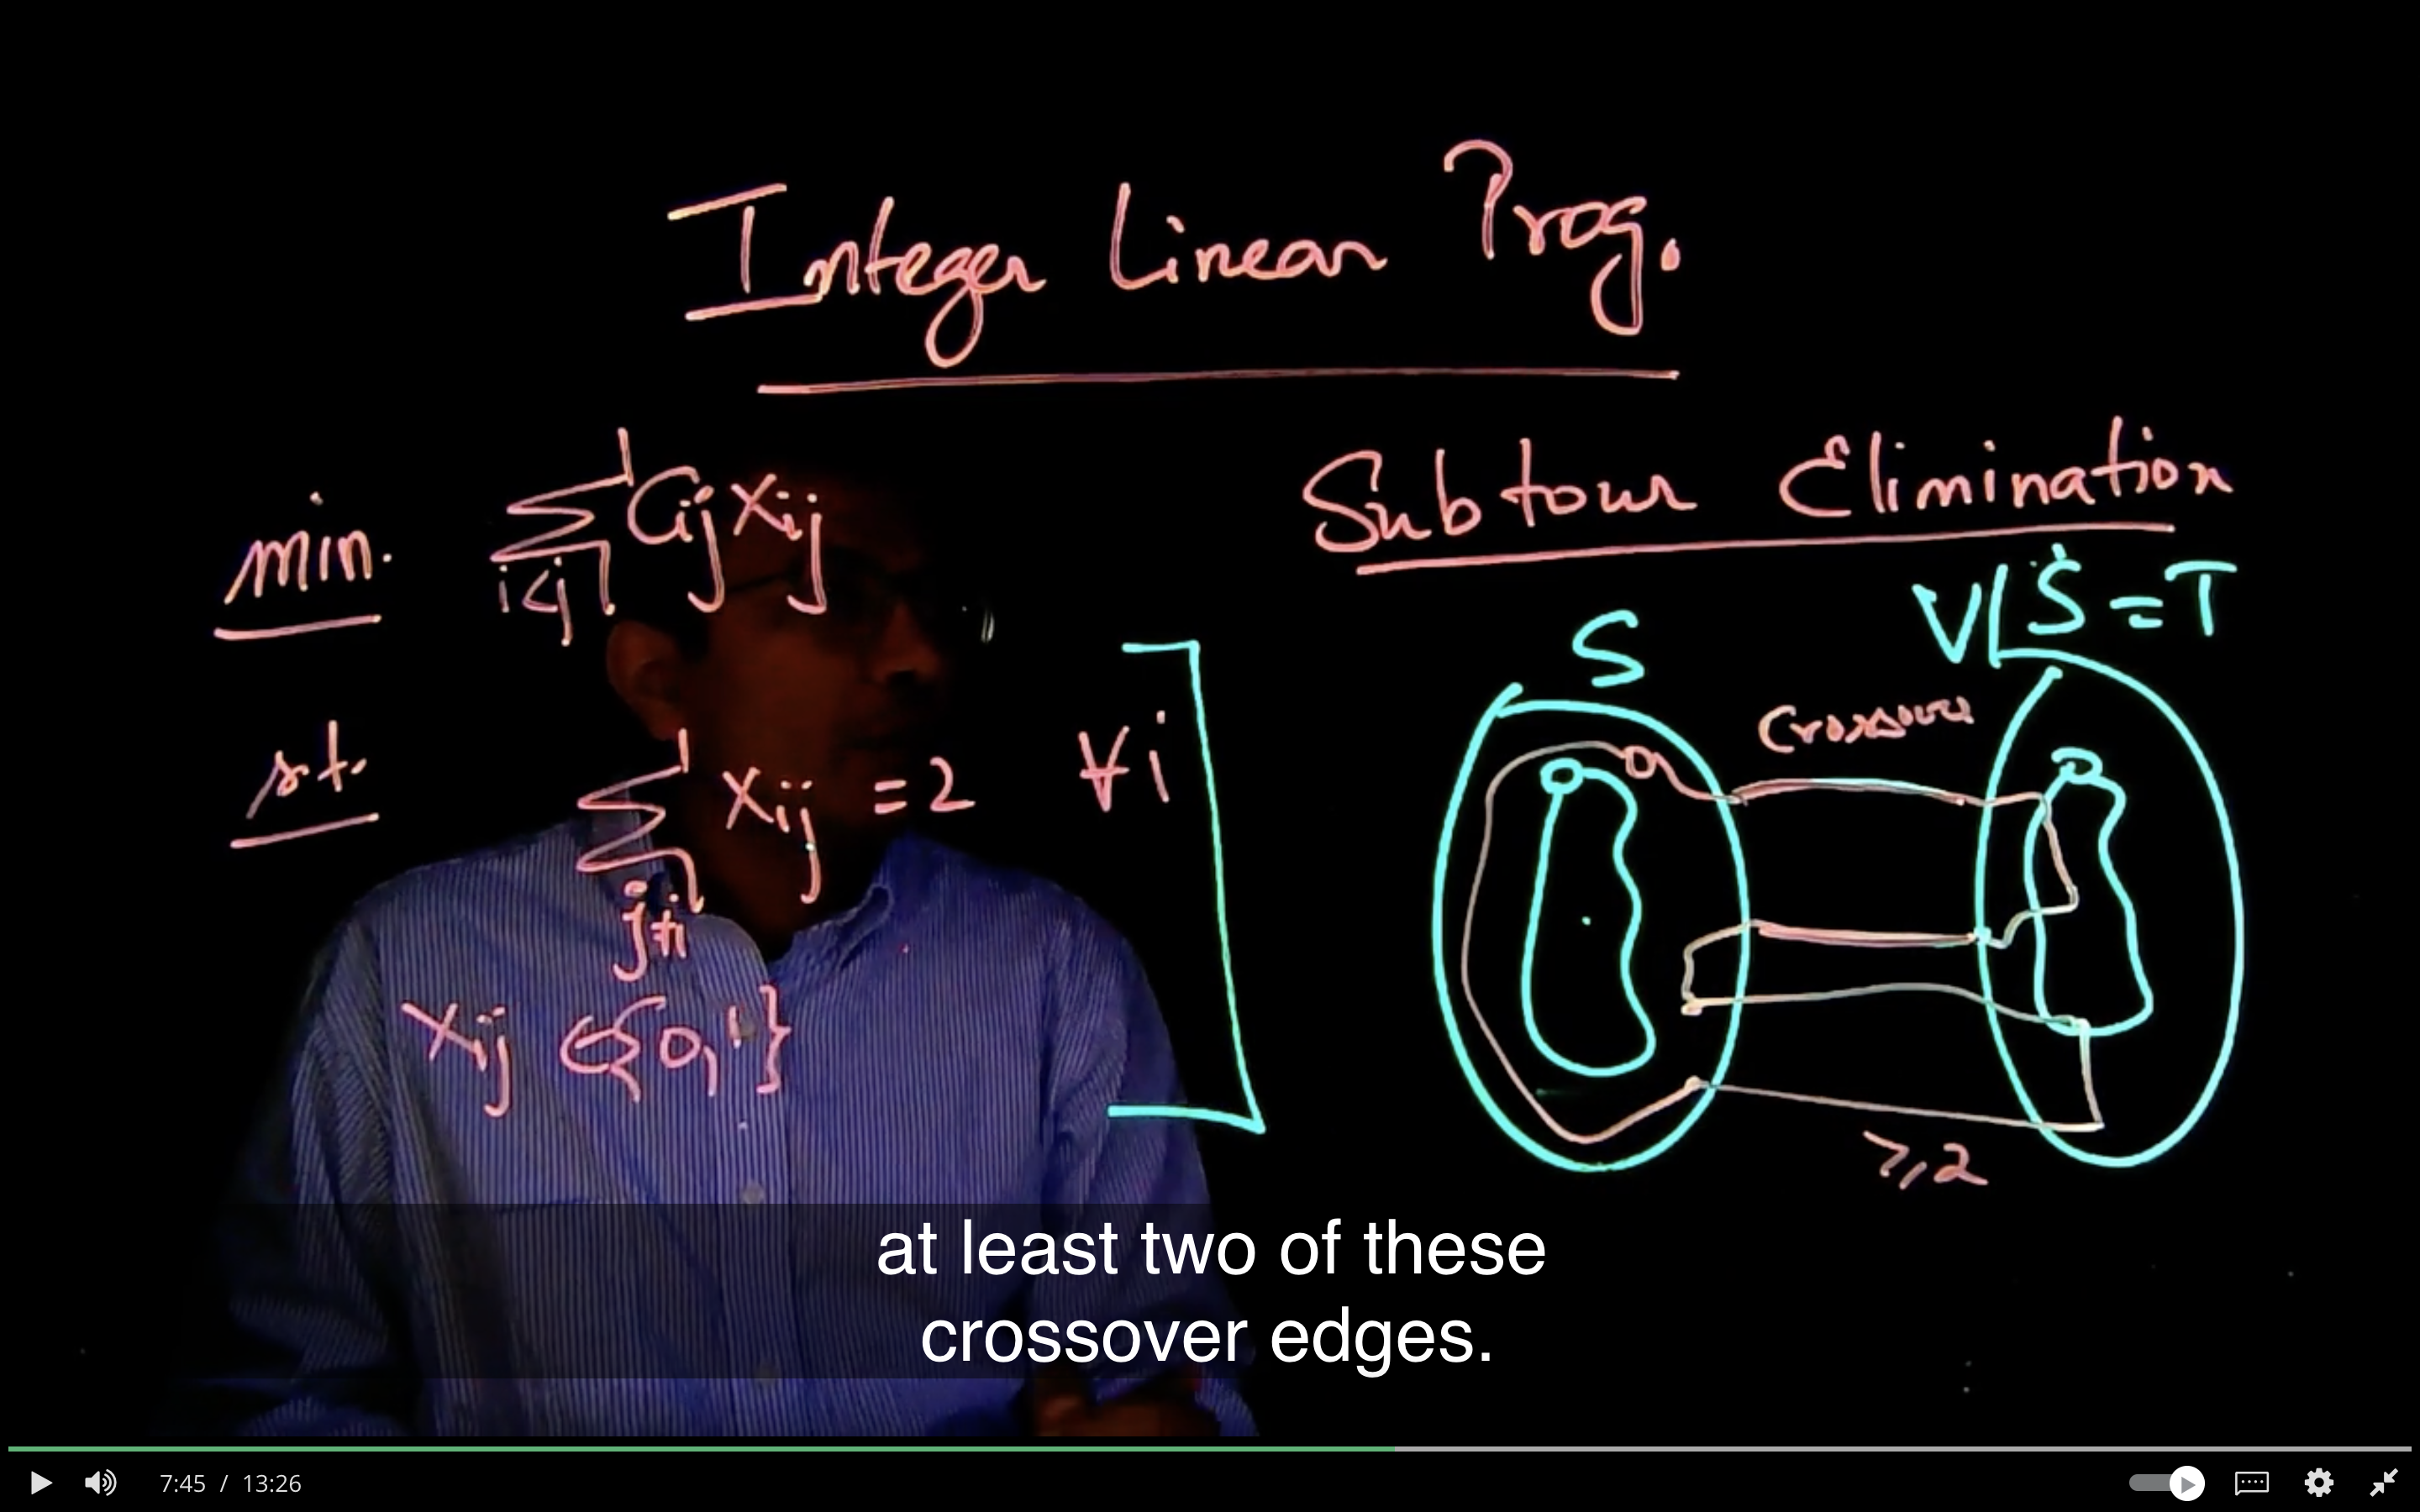 Integer Linear Prog.
min. ∑ Cij xij
i<j
s.t. ∑ xij = 2 ∀i
j≠i
xij ∈ {0,1}
Subtour Elimination
S
V\S = T
Crossover
≥2
at least two of these
crossover edges.
7:45 / 13:26